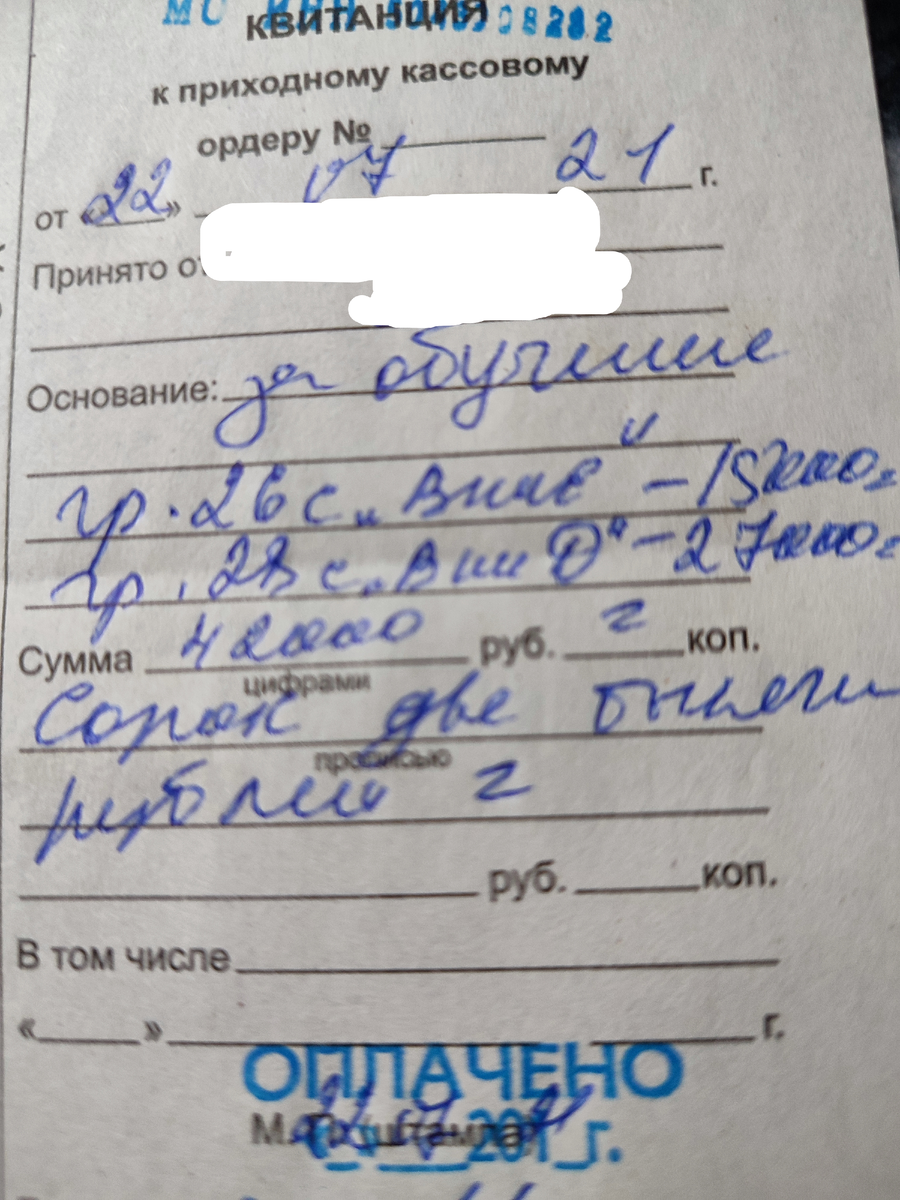 КВИТАНЦИЯ
к приходному кассовому
ордеру №
от «22» 07 21 г.
Принято от
Основание: за обучение
гр. 26 с „ " - 15000=
гр. 28 с „ " - 27000=
Сумма 42000 руб. = коп.
цифрами
Сорок две тысячи
прописью
рублей =
руб. коп.
В том числе
« » г.
ОПЛАЧЕНО
М.П. (штампа)
22 07 21
201 г.